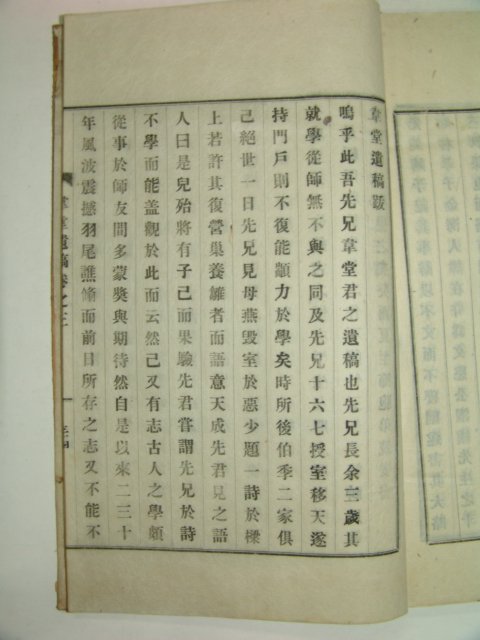 韋堂遺稿跋
嗚乎此吾先兄韋堂君之遺稿也先兄長余三歲其
就學從師無不與之同及先兄十六七授室移天遂
持門戶則不復能顓力於學矣時所後伯季二家俱
己絕世一日先兄見母燕毀室於惡少題一詩於樑
上若許其復營巢養雛者而語意天成先君見之語
人曰是兒殆將有子己而果驗先君嘗謂先兄於詩
不學而能盖觀於此而云然己又有志古人之學頗
從事於師友間多蒙奬與期待然自是以來二三十
年風波震撼羽尾譙翛而前日所存之志又不能不
韋堂遺稿卷之三